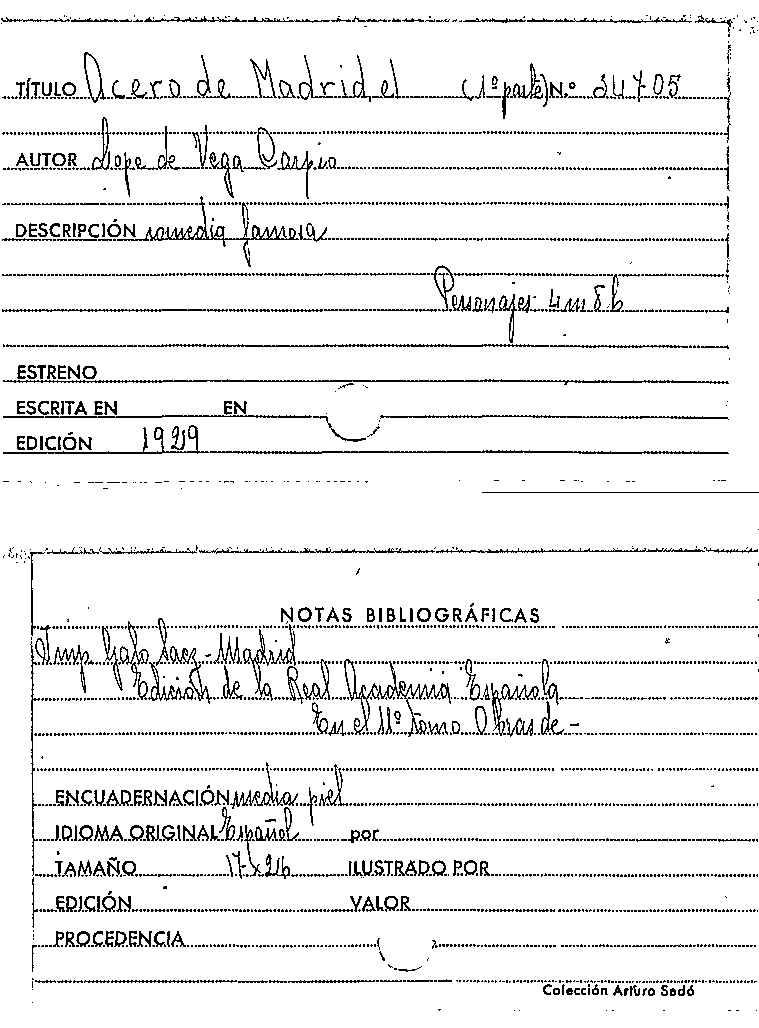 TÍTULO Acero de Madrid, el (1ª parte) N.º 24705
AUTOR Lope de Vega Carpio
DESCRIPCIÓN comedia famosa
Personajes 4 m 8 h
ESTRENO
ESCRITA EN EN
EDICIÓN 1929
NOTAS BIBLIOGRÁFICAS
Imp. Galo Saez - Madrid
Edición de la Real Academia Española
En el 11º tomo Obras de -
ENCUADERNACIÓN media piel
IDIOMA ORIGINAL Español por
TAMAÑO 17 x 26 ILUSTRADO POR
EDICIÓN VALOR
PROCEDENCIA
Colección Arturo Sedó